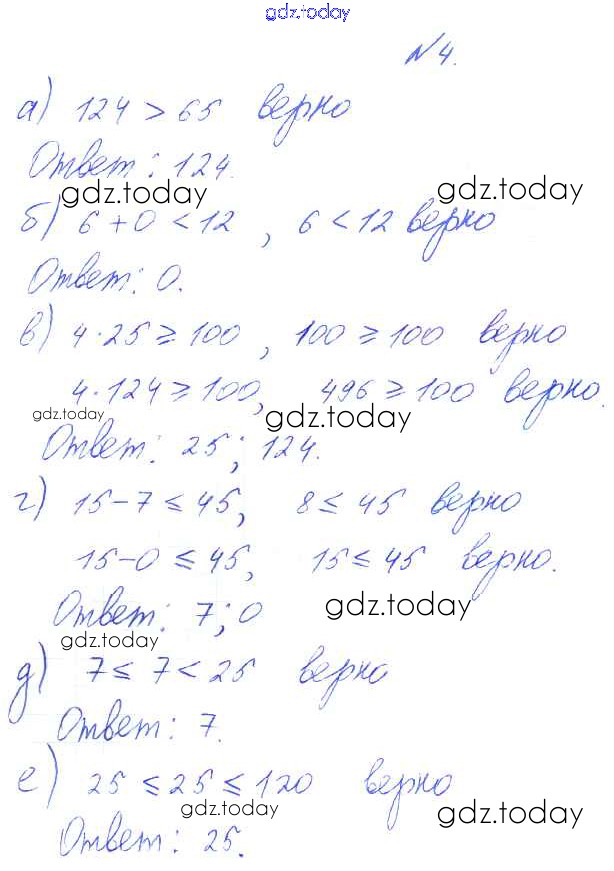 gdz.today
№4.
а) 124 > 65 верно
Ответ: 124.
gdz.today gdz.today
б) 6 + 0 < 12, 6 < 12 верно
Ответ: 0.
в) 4·25 ⩾ 100, 100 ⩾ 100 верно
4·124 ⩾ 100, 496 ⩾ 100 верно.
gdz.today gdz.today
Ответ: 25; 124.
г) 15-7 ⩽ 45, 8 ⩽ 45 верно
15-0 ⩽ 45, 15 ⩽ 45 верно.
Ответ: 7; 0 gdz.today
gdz.today
д) 7 ⩽ 7 < 25 верно
Ответ: 7.
е) 25 ⩽ 25 ⩽ 120 верно
gdz.today gdz.today
Ответ: 25.